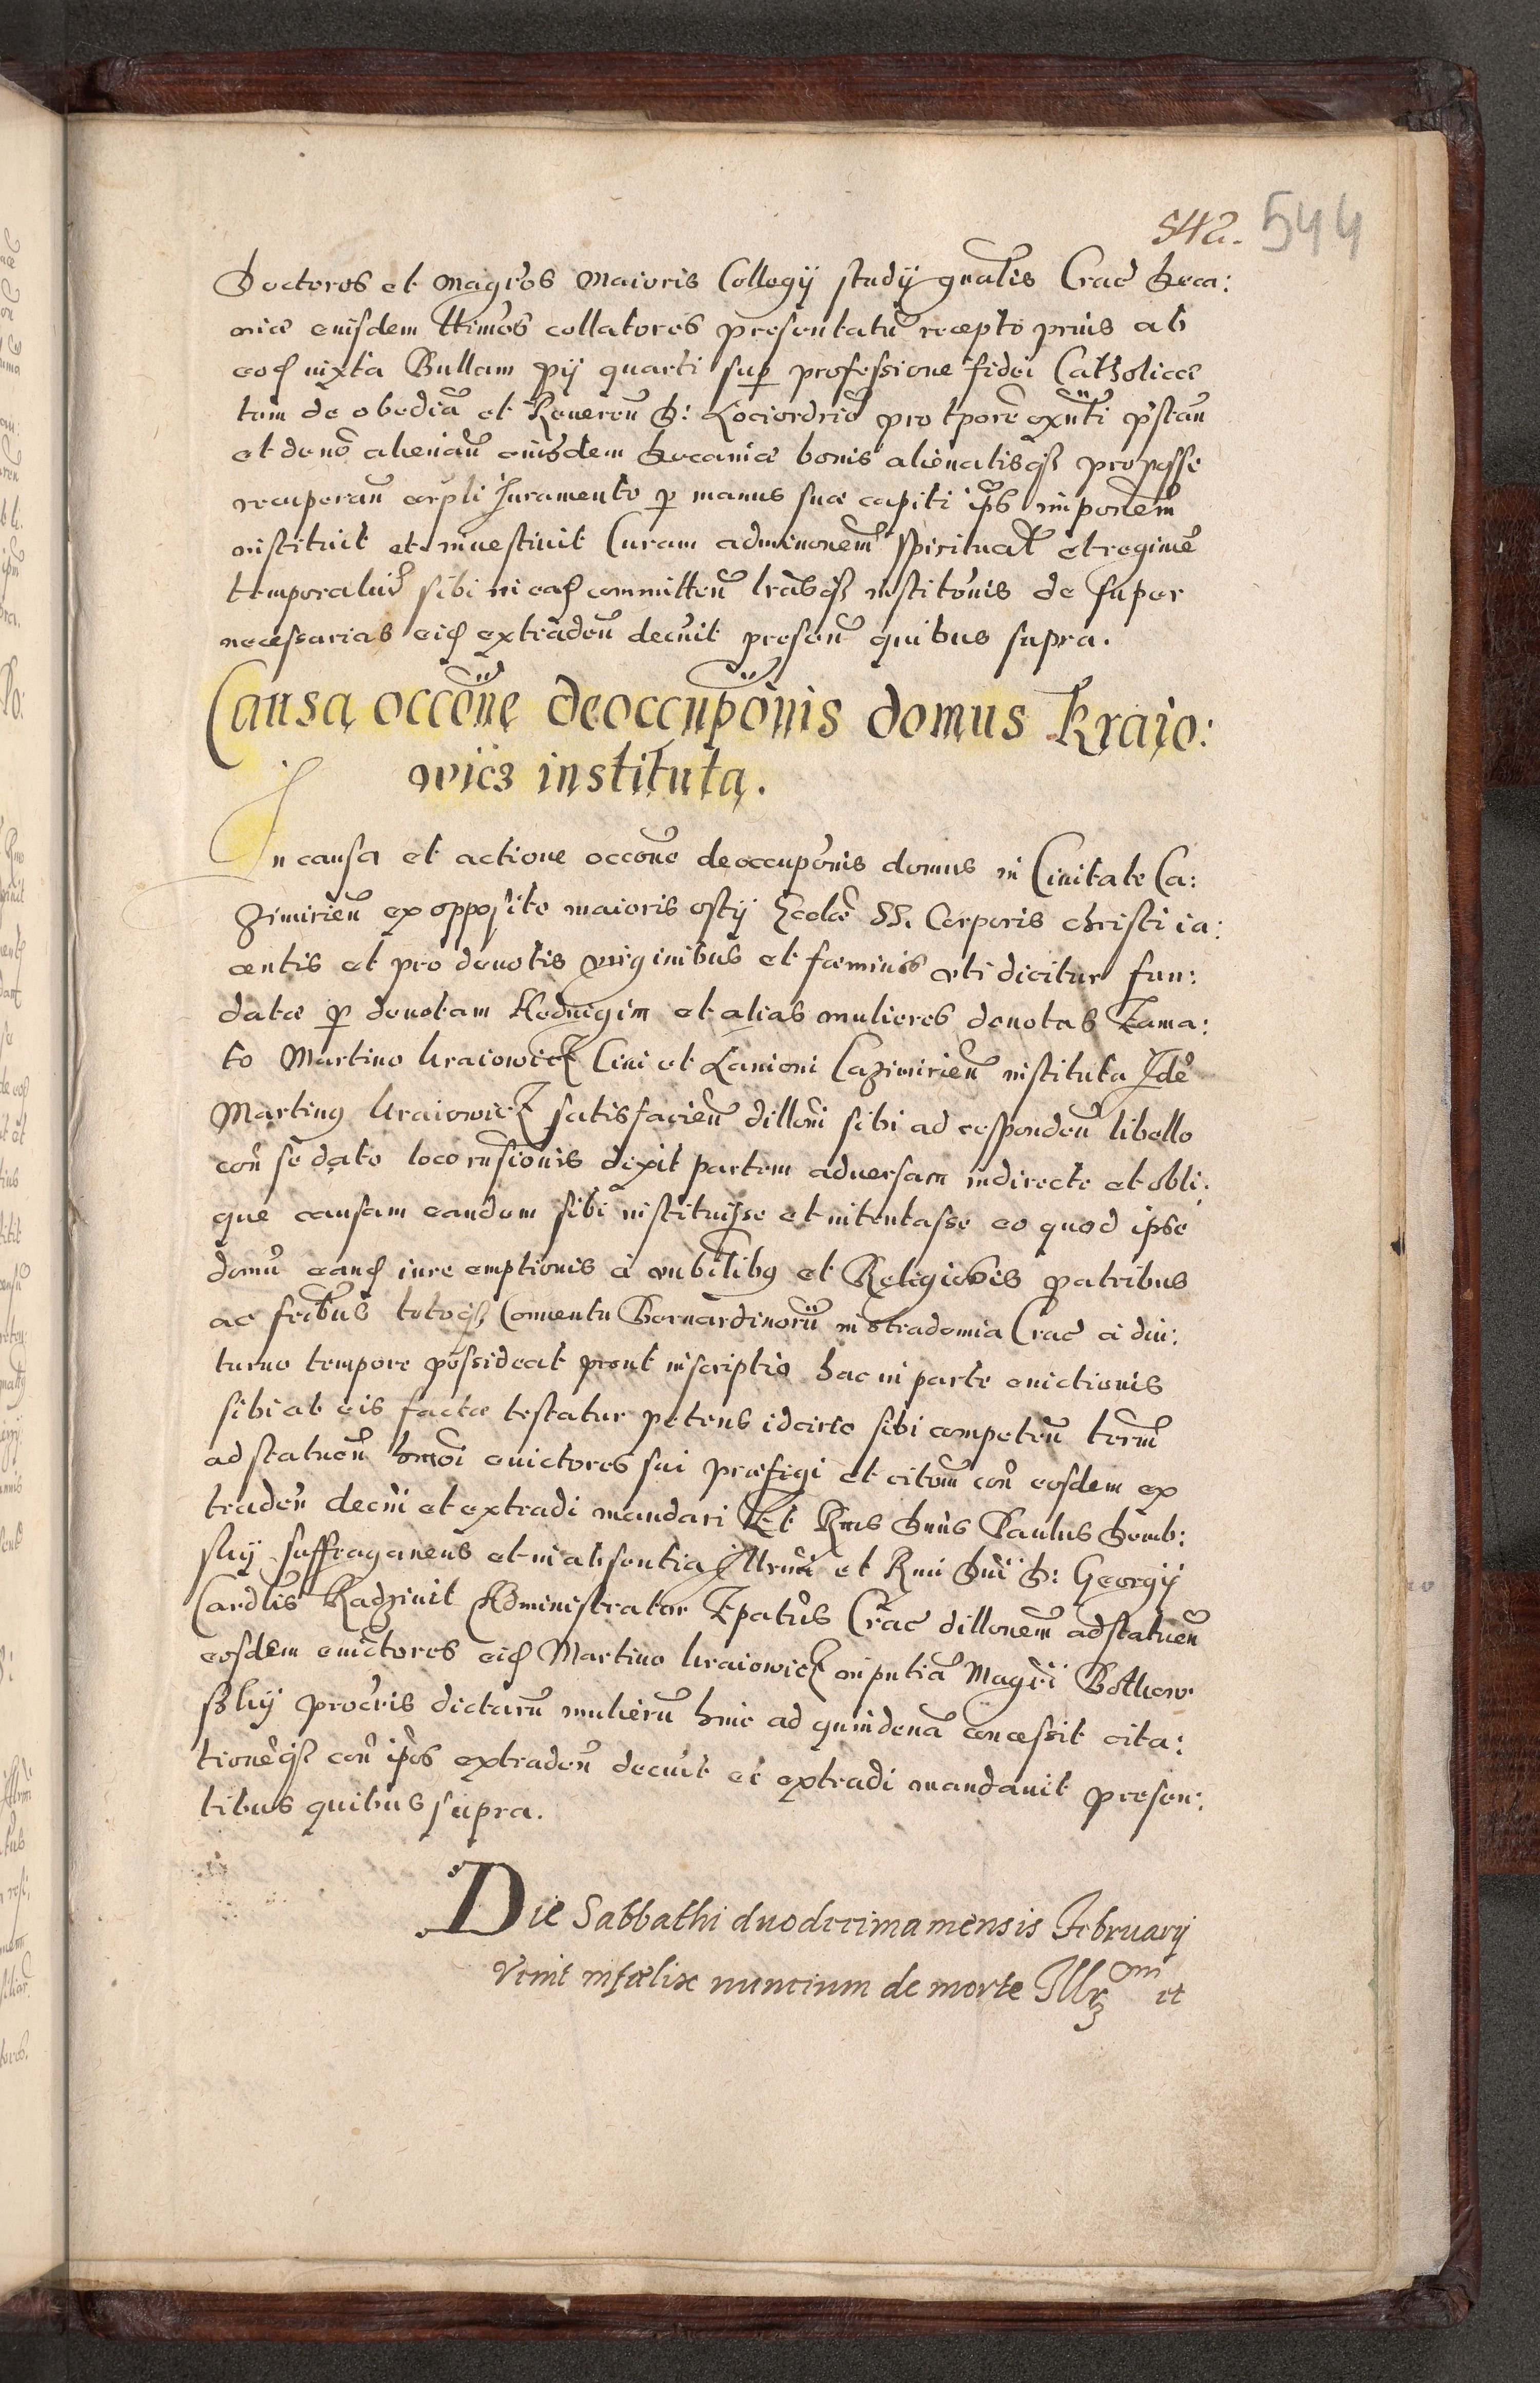 542. 544
Doctores et Magros Maioris Collegij studij gnalis Crac Deca:
niæ eiusdem ltimos collatores presentatũ recepto prius ab
eod iuxta Bullam pij quarti sup professione fidei Catholicæ
tum de obediã et Reueren D: Lociordrio pro tpore exñti pstan
et de nõ alienan eiusdem Decaniæ bonis alienatisq pro posse
recuperan corpli Juramento p manus suæ capiti ipš imponem
instituit et inuestiuit Curam adminonem spiritual et regimẽ
temporaliũ sibi in ead committen lrasq institõnis de super
necessarias eid extraden decreuit presen quibus supra.
Causa occõne deoccupõnis domus Kraio:
wicz instituta.
In causa et actione occone deoccupõnis domus in Ciuitate Ca:
zimirien ex opposito maioris ostij Ecclæ SS. Corporis christi ia:
centis et pro deuotis virginibus et fœminis vti dicitur fun:
datæ p deuotam Heduigim et alias mulieres deuotas Fama:
to Martino Kraiowicz Ciui et Lanioni Cazimirien instituta Idẽ
Martinus Kraiowicz satisfacien dilloni sibi ad responden libello
con se dato loco rnsionis dixit partem aduersam indirecte et obli:
que causam eandem sibi instituisse et intentasse eo quod ipse
domũ eand iure emptionis à nobilibus et Religiosis patribus
ac fribus totoq Conuentu Bernardinorũ in Stradomia Crac à diu:
turno tempore possideat prout inscriptio hac in parte euictionis
sibi ab eis factæ testatur petens idcirco sibi competen termĩ
ad statuen hmõi euictores sui præfigi et citõm con eosdem ex
traden decni et extradi mandari Et Rmus Dnus Paulus Demb:
skij suffraganeus et in absentia Illrmi et Rmi Dni D: Georgij
Cardlis Radziuil Administrator Epatus Crac dillonem ad statuen
eosdem euictores eid Martino Kraiowicz in pntia Magri Bothow
skij procris dictarũ mulierũ hinc ad quindenã concessit cita:
tionẽq con ipos extraden decreuit et extradi mandauit presen:
tibus quibus supra.
Die Sabbathi duodecima mensis Februarij
Venit infœlix nuncium de morte Illrmi et